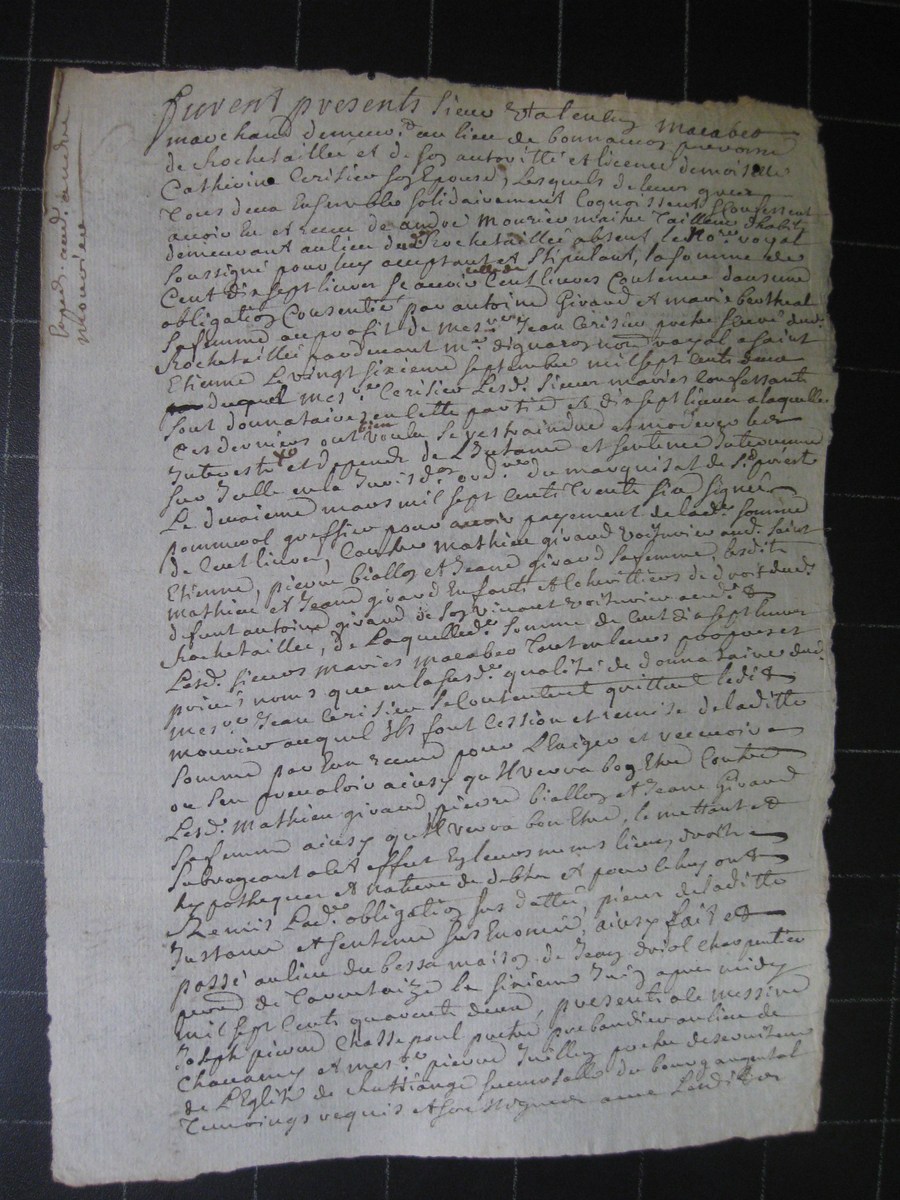 furent presents sieur Valentin Macabeo
marchand demeur.t au lieu de bonnanos parroisse
de Rochetaillée et de son autoritté et licence demoiselle
Catherine Cerisier son Epouse, Lesquels de leurs grez
tous deux Ensemble solidairement Cognoissent & Confessent
avoir Eu et receu de andré Mourier maitre Tailleur d'habits
demeurant au lieu de Rochetaillée absent le No.re royal
soussigné pour luy acceptant et stipulant, la somme de
Cent dix sept livres scavoir celle de Cent livres Contenue dans une
obligation Consentie par antoine Girard et marie bertheal
sa femme au profit de mes.re Jean Cerisier pretre Curé dud.
Rochetaillée pardevant m.e dignaron no.re royal a saint
Etienne Le vingt sixieme septembre mil sept cents onze
duquel mes.re Cerisier Lesd. sieur mariés Confessants
sont donnataires en cette partie et dix sept livres a laquelle
Ces derniers ont bien voulu se restraindre et moderer les
Interests et depends de L'Instance et sentence Intervenue
sur Icelle en la Jurisd.on ord.re du marquisat de S.t priest
Le deuxieme mars mil sept cents trente six signée
pommerol greffier pour avoir payement de lad. somme
de Cent livres, Contre mathieu girard voiturier aud. saint
Etienne, pierre biallon et Jeanne girard sa femme, lesdits
mathieu et Jeanne girard Enfants et heritiers de droit dud.
defunt antoine girard de son vivant voiturier aud.t
Rochetaillée, de Laquelled. somme de Cent dix sept livres
Lesd. sieurs mariés macabeo tant en leurs propres et
privés noms que en la susd. qualité de donnataires dud.
mes.re Jean Cerisier se Contentent quittent ledit
mourier auquel Ils font Cession et remise de laditte
somme par Eux receue pour L'Exiger et recevoir
ou s'en prevaloir ainsy qu'Il verra bon Etre Contre
Lesd. mathieu girard pierre biallon et Jeanne Girard
sa femme ainsy qu'Il verra bon Etre, le mettant et
subrogeant a cet effect En leurs mêmes lieux, droits
hypotheques et nature de debte et pour ce luy ont
Remis Lad. obligation sus datée, pieces de laditte
Instance et sentence sus Enoncée, ainsy fait et
passé au lieu du bessa maison de Jean driol charpentier
parr.e de Tarentaize le sixieme Juin apres midy
mil sept cents quarente deux, presents a ce messire
Joseph pierre Chassepoul pretre prebandier au lieu de
Chavanay et mes.re pierre Juillen pretre desserviteur
de L'Eglise de Ruthiange succursalle du bourg argental
Temoings requis et soussignez avec Lesdits